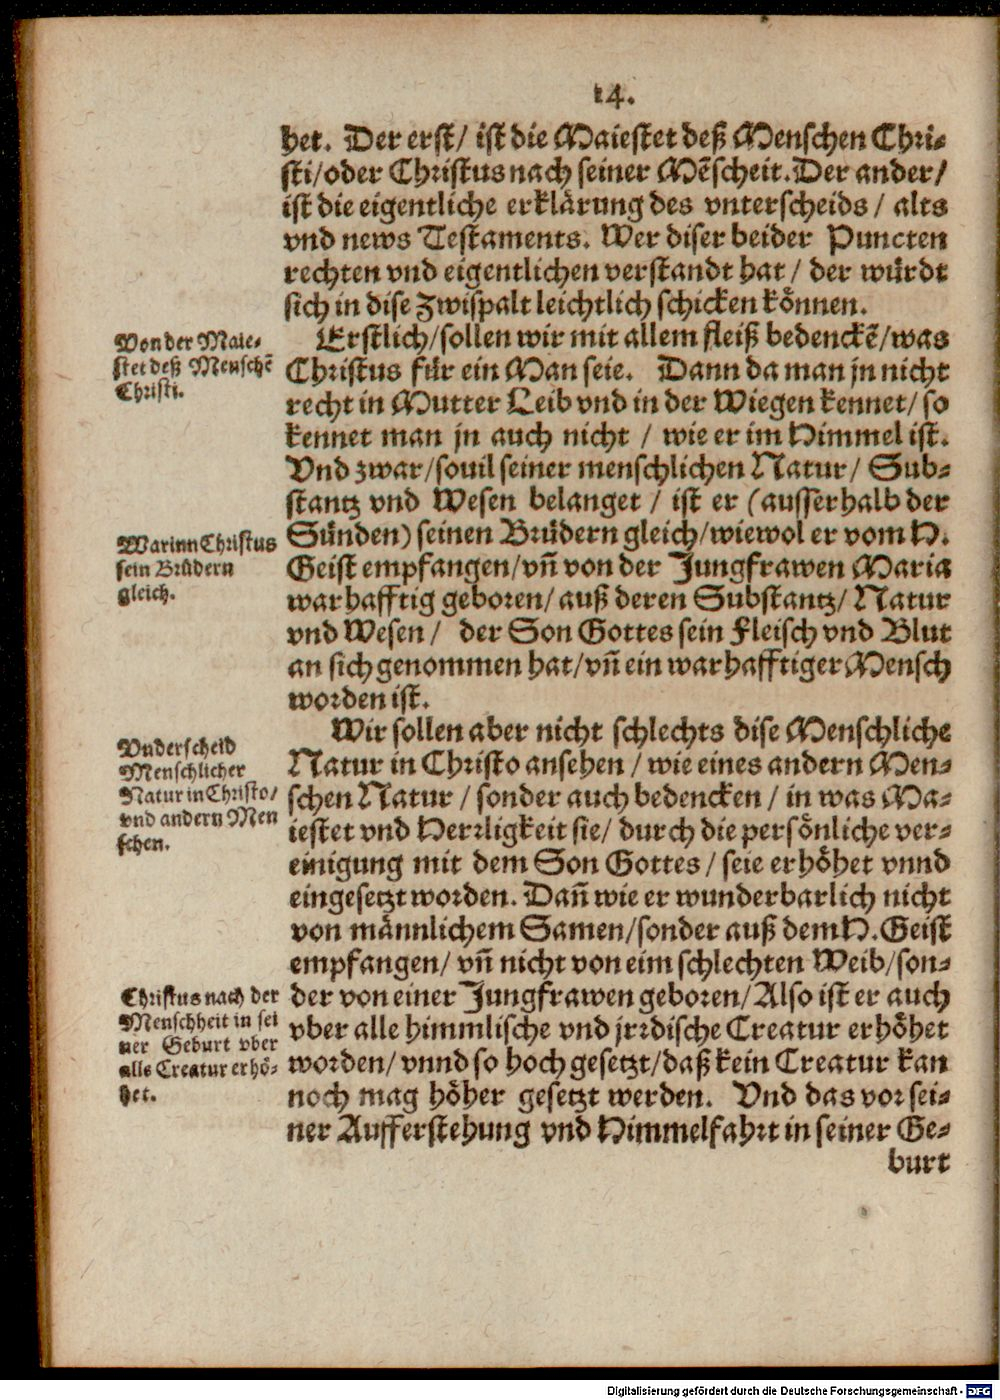 14.
het. Der erst/ ist die Maiestet deß Menschen Chri-
sti/oder Christus nach seiner Mẽscheit. Der ander/
ist die eigentliche erklärung des vnterscheids / alts
vnd news Testaments. Wer diser beider Puncten
rechten vnd eigentlichen verstandt hat / der würdt
sich in dise zwispalt leichtlich schicken können.
Von der Maie-
stet deß Menschẽ
Christi.
Erstlich/sollen wir mit allem fleiß bedenckẽ/was
Christus für ein Man seie. Dann da man jn nicht
recht in Mutter Leib vnd in der Wiegen kennet/ so
kennet man jn auch nicht / wie er im Himmel ist.
Vnd zwar/souil seiner menschlichen Natur/ Sub-
stantz vnd Wesen belanget / ist er (ausserhalb der
Warinn Christus
sein Brüdern
gleich.
Sünden) seinen Brüdern gleich/wiewol er vom H.
Geist empfangen/vñ von der Jungfrawen Maria
warhafftig geboren/ auß deren Substantz/ Natur
vnd Wesen/ der Son Gottes sein Fleisch vnd Blut
an sich genommen hat/vñ ein warhafftiger Mensch
worden ist.
Wir sollen aber nicht schlechts dise Menschliche
Vnderscheid
Menschlicher
Natur in Christo/
vnd andern Men
schen.
Natur in Christo ansehen / wie eines andern Men-
schen Natur / sonder auch bedencken / in was Ma-
iestet vnd Herrligkeit sie/ durch die persönliche ver-
einigung mit dem Son Gottes / seie erhöhet vnnd
eingesetzt worden. Dañ wie er wunderbarlich nicht
von männlichem Samen/sonder auß dem H. Geist
empfangen/ vñ nicht von eim schlechten Weib/son-
Christus nach der
Menschheit in sei
ner Geburt vber
alle Creatur erhö-
het.
der von einer Jungfrawen geboren/Also ist er auch
vber alle himmlische vnd jrrdische Creatur erhöhet
worden/ vnnd so hoch gesetzt/daß kein Creatur kan
noch mag höher gesetzt werden. Vnd das vor sei-
ner Aufferstehung vnd Himmelfahrt in seiner Ge-
burt
Digitalisierung gefördert durch die Deutsche Forschungsgemeinschaft - DFG